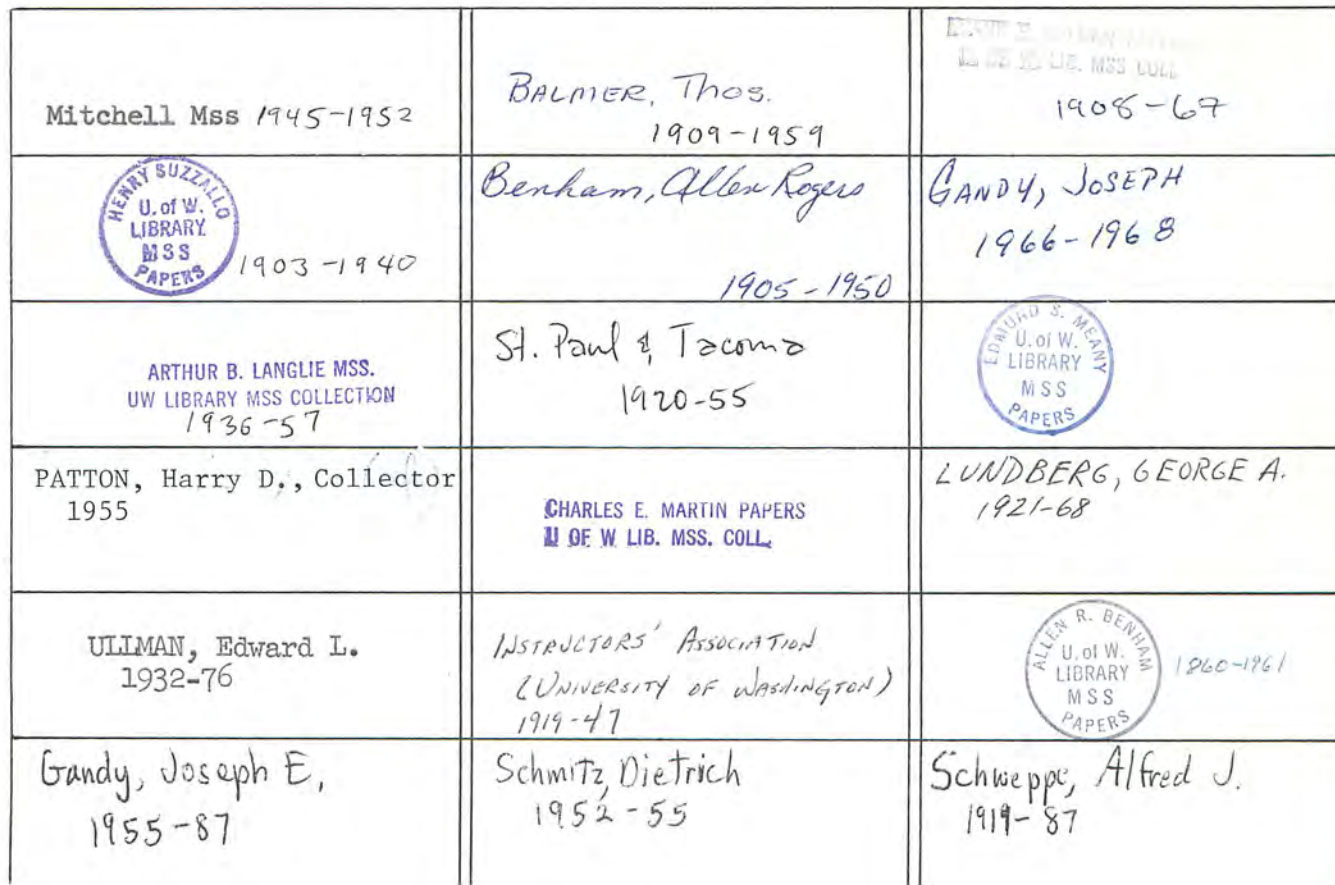 Mitchell Mss 1945-1952
BALMER, Thos.
1909-1959
LIB. MSS COLL
1908-67
HENRY SUZZALLO
U. of W.
LIBRARY
MSS
PAPERS
1903-1940
Benham, Allen Rogers
1905-1950
GANDY, JOSEPH
1966-1968
ARTHUR B. LANGLIE MSS.
UW LIBRARY MSS COLLECTION
1936-57
St. Paul & Tacoma
1920-55
EDMUND S. MEANY
U. of W.
LIBRARY
MSS
PAPERS
PATTON, Harry D., Collector
1955
CHARLES E. MARTIN PAPERS
U OF W LIB. MSS. COLL.
LUNDBERG, GEORGE A.
1921-68
ULLMAN, Edward L.
1932-76
INSTRUCTORS' ASSOCIATION
(UNIVERSITY OF WASHINGTON)
1919-47
ALLEN R. BENHAM
U. of W.
LIBRARY
MSS
PAPERS
1860-1961
Gandy, Joseph E,
1955-87
Schmitz, Dietrich
1952-55
Schweppe, Alfred J.
1919-87